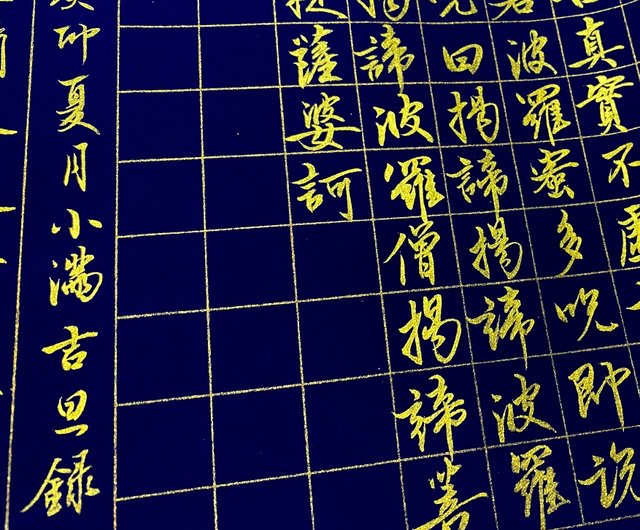 真實不虛
若波羅蜜多呪即說
呪曰揭諦揭諦波羅
揭諦波羅僧揭諦菩
提薩婆訶
癸卯夏月小滿吉旦錄